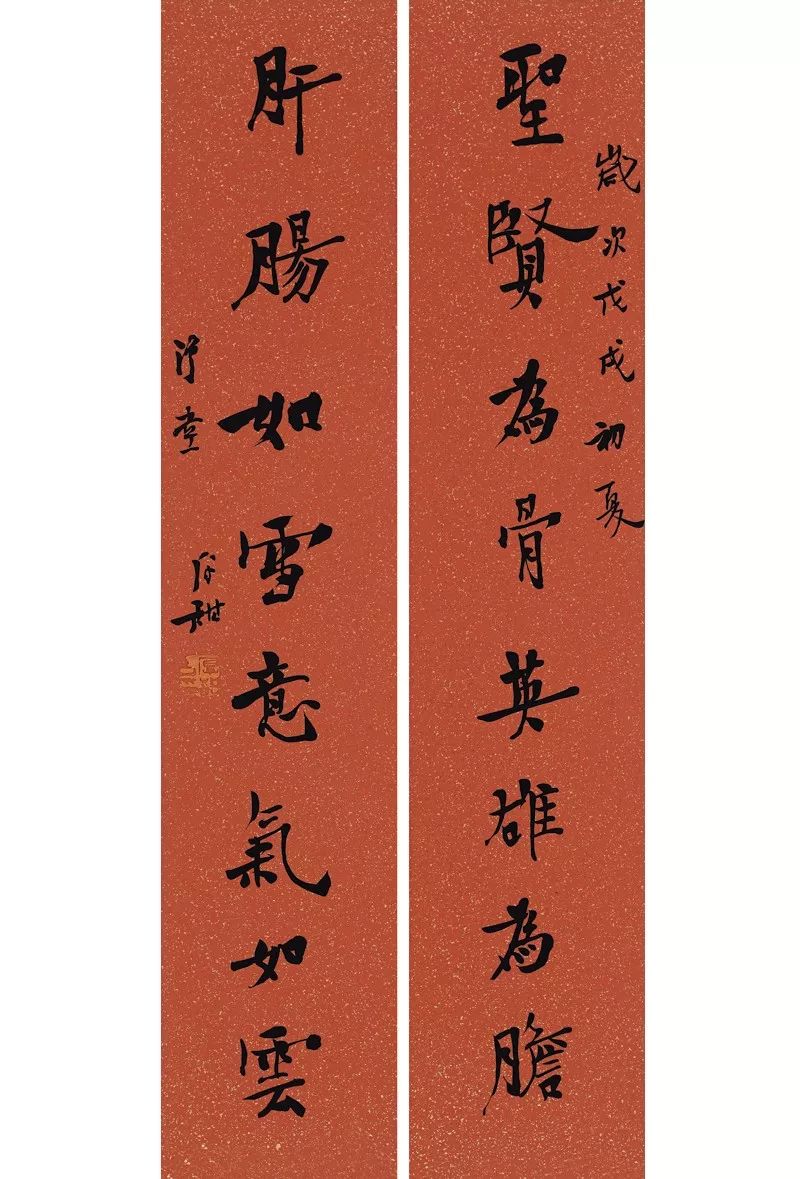 歲次戊戌初夏
聖賢為骨英雄為膽
肝腸如雪意氣如雲